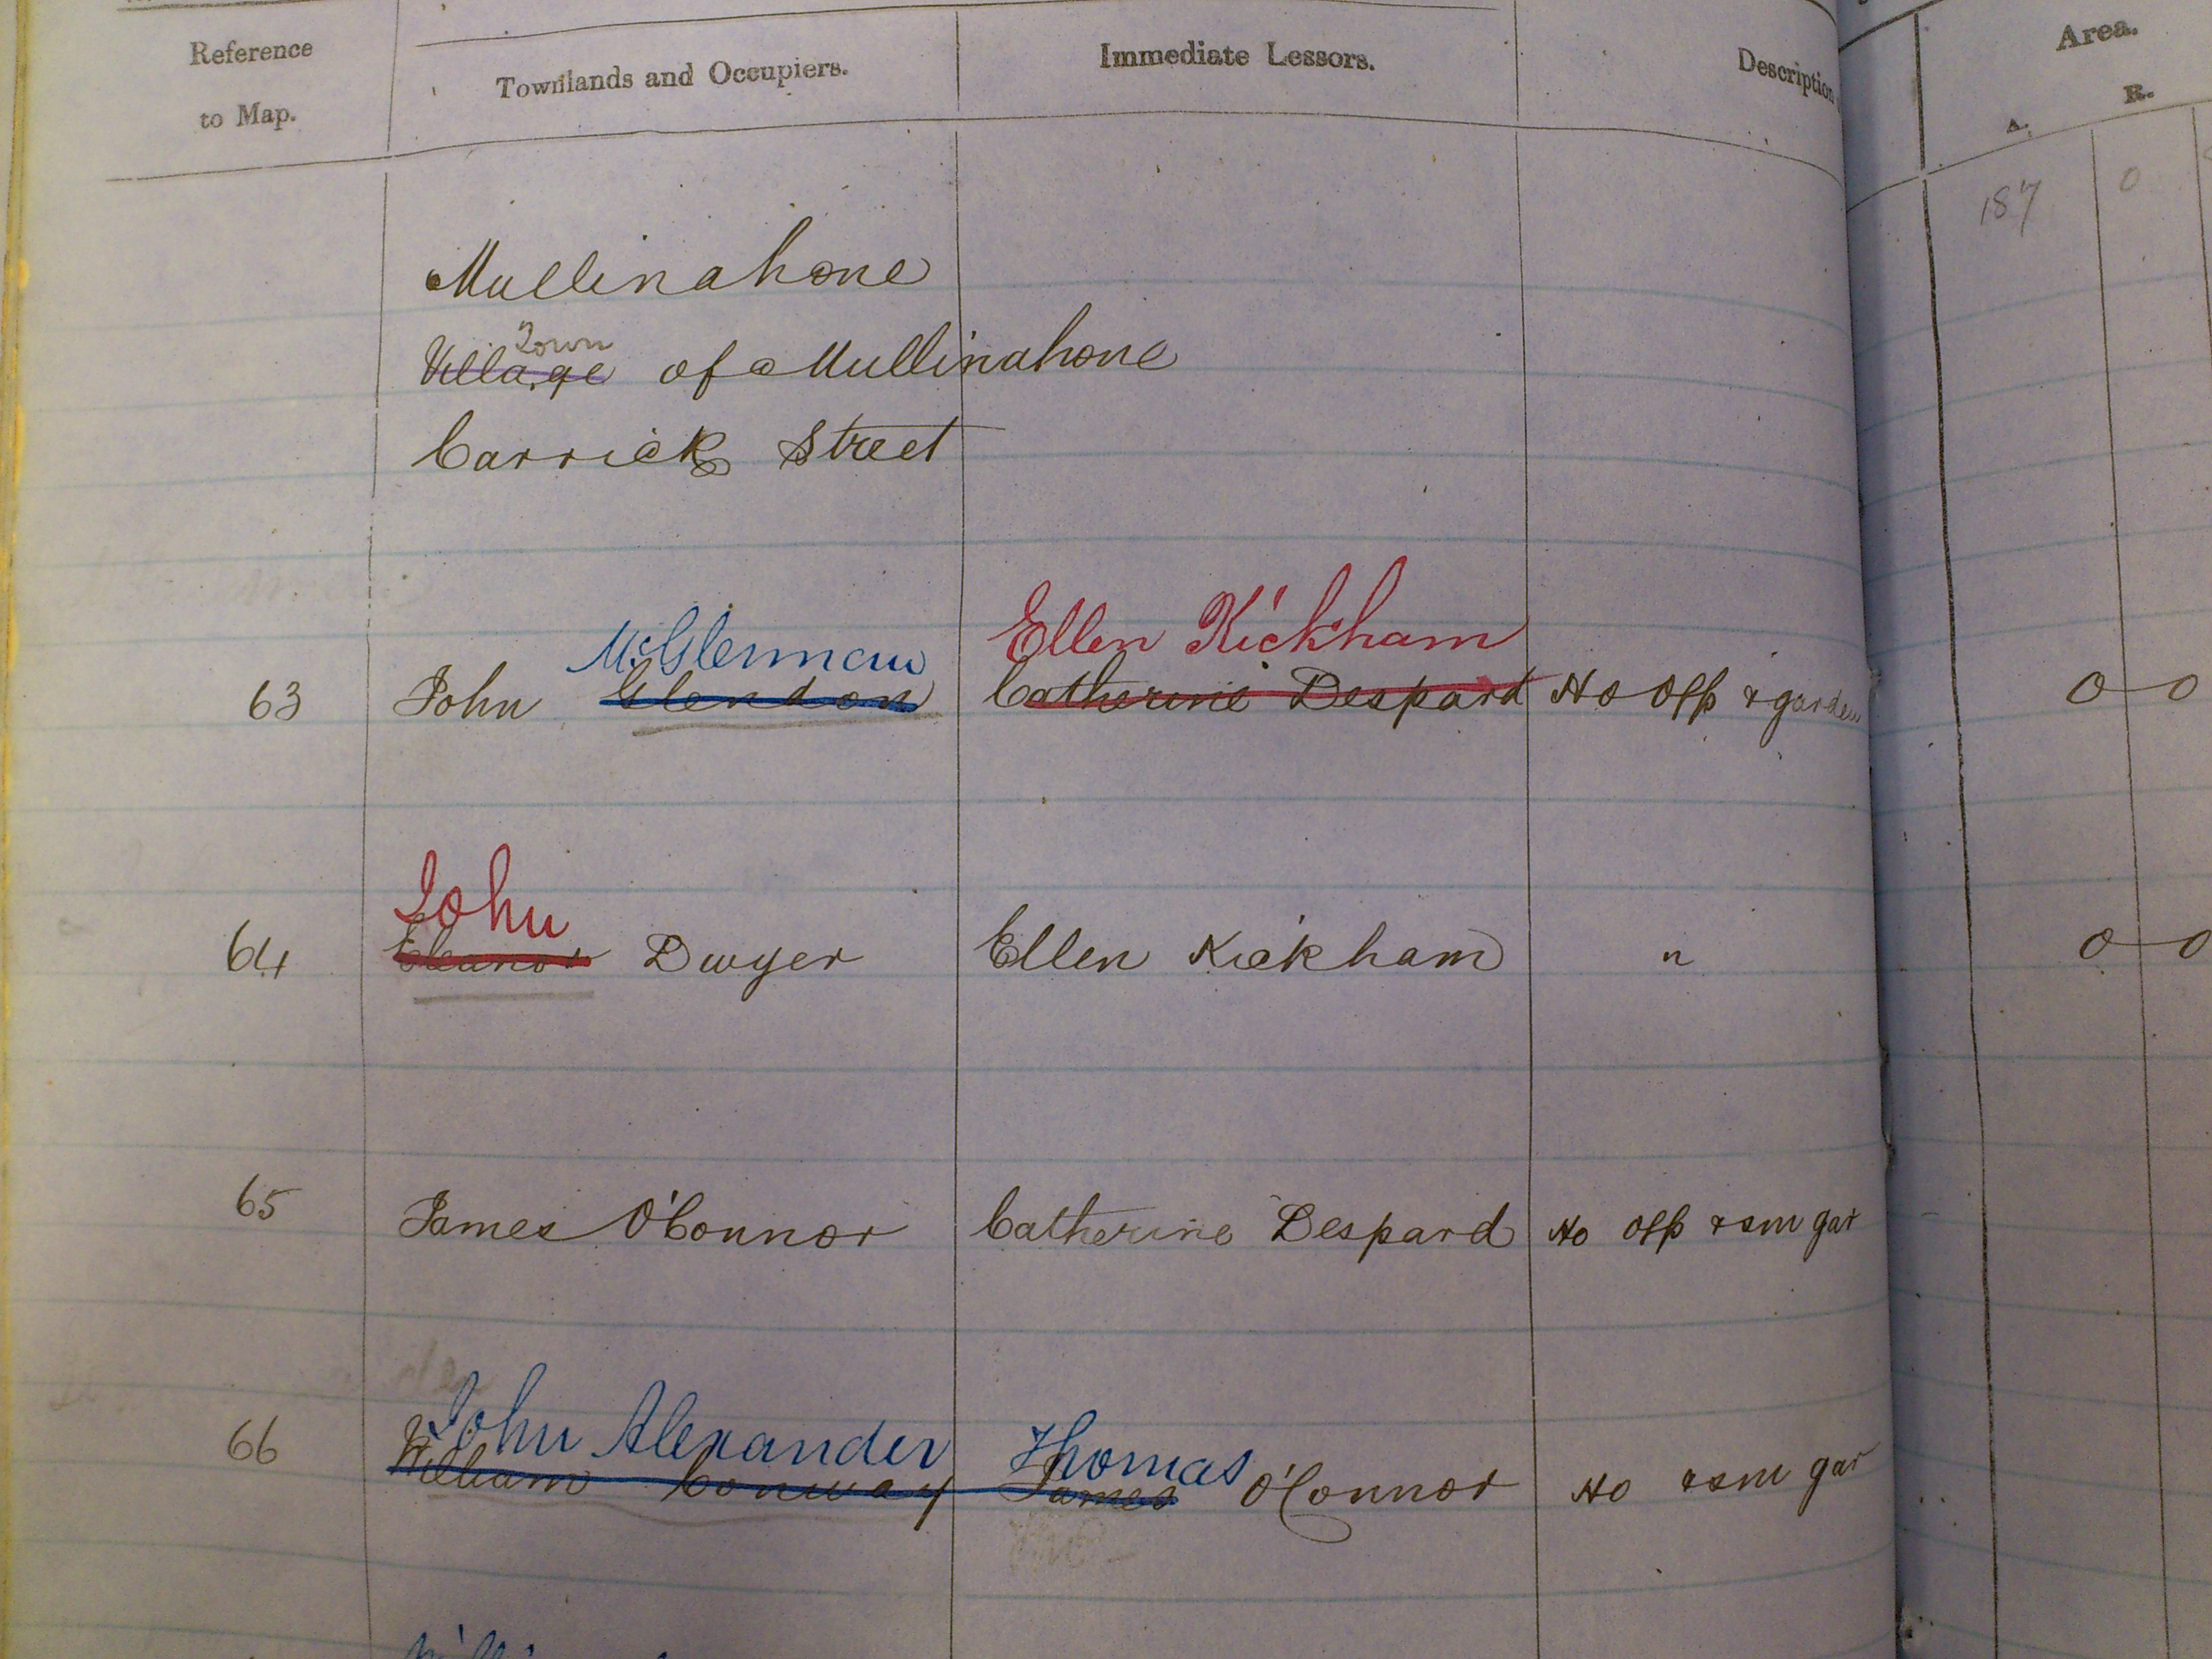 Reference to Map.
Townlands and Occupiers.
Immediate Lessors.
Description
Area.
A. R.
187 0
Mullinahone
Town
Village of Mullinahone
Carrick Street
McGlennan Ellen Kickham
63 John Glendon Catherine Despard Ho Off & garden 0 0
John
64 Eleanor Dwyer Ellen Kickham " 0 0
65 James O'Connor Catherine Despard Ho off & sm gar
John Alexander Thomas
66 William Conway James O'Connor Ho & sm gar